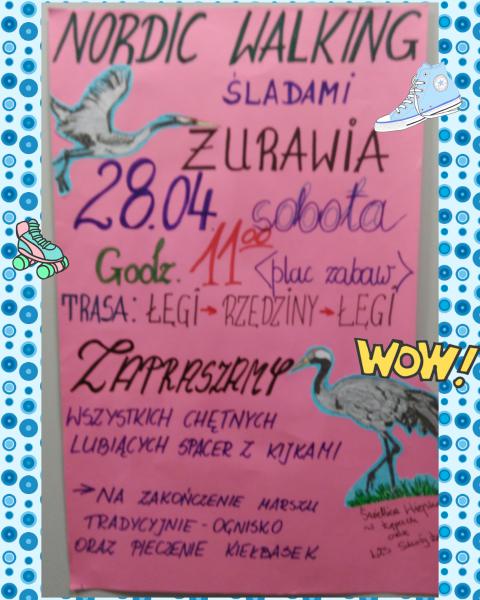 NORDIC WALKING
ŚLADAMI
ŻURAWIA
28.04. sobota
Godz. 11⁰⁰ <plac zabaw.>
TRASA: ŁĘGI → RZĘDZINY → ŁĘGI
ZAPRASZAMY
WOW!
WSZYSTKICH CHĘTNYCH
LUBIĄCYCH SPACER Z KIJKAMI
→ NA ZAKOŃCZENIE MARSZU
TRADYCYJNIE - OGNISKO
ORAZ PIECZENIE KIEŁBASEK
Świetlica Wiejska
w Łęgach
oraz
LZS